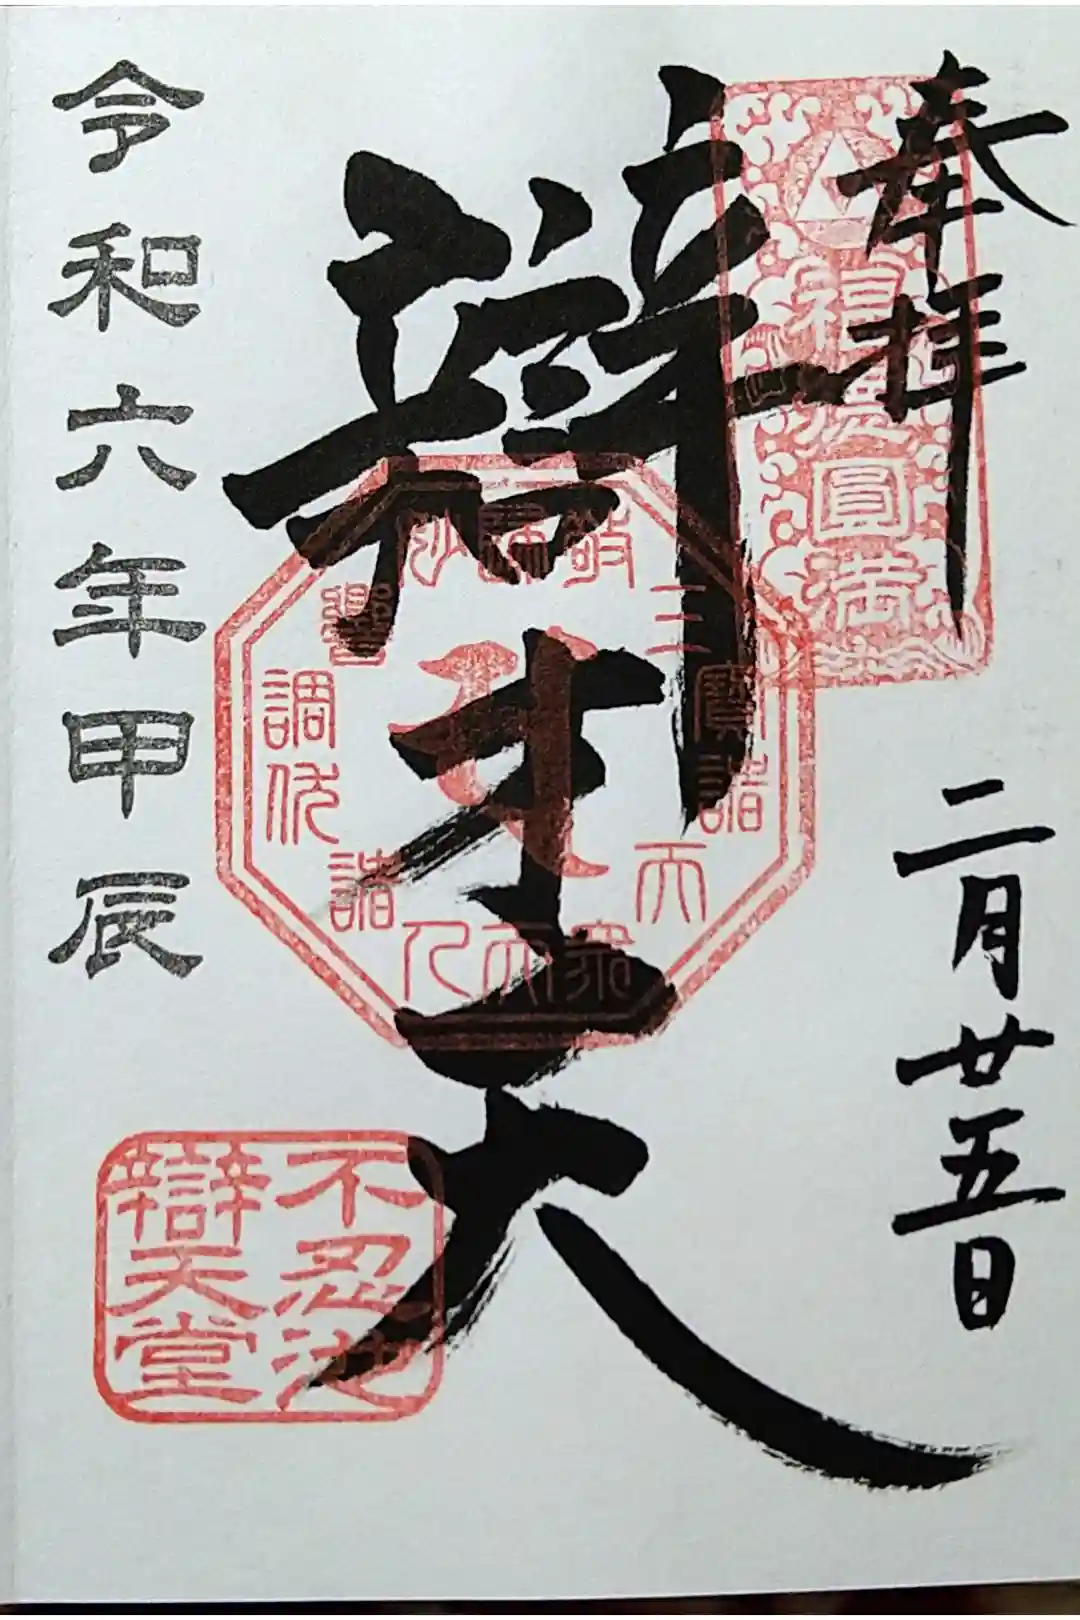 奉拝
二月廿五日
福寿圓満
辯才天
不忍池
辯天堂
令和六年甲辰